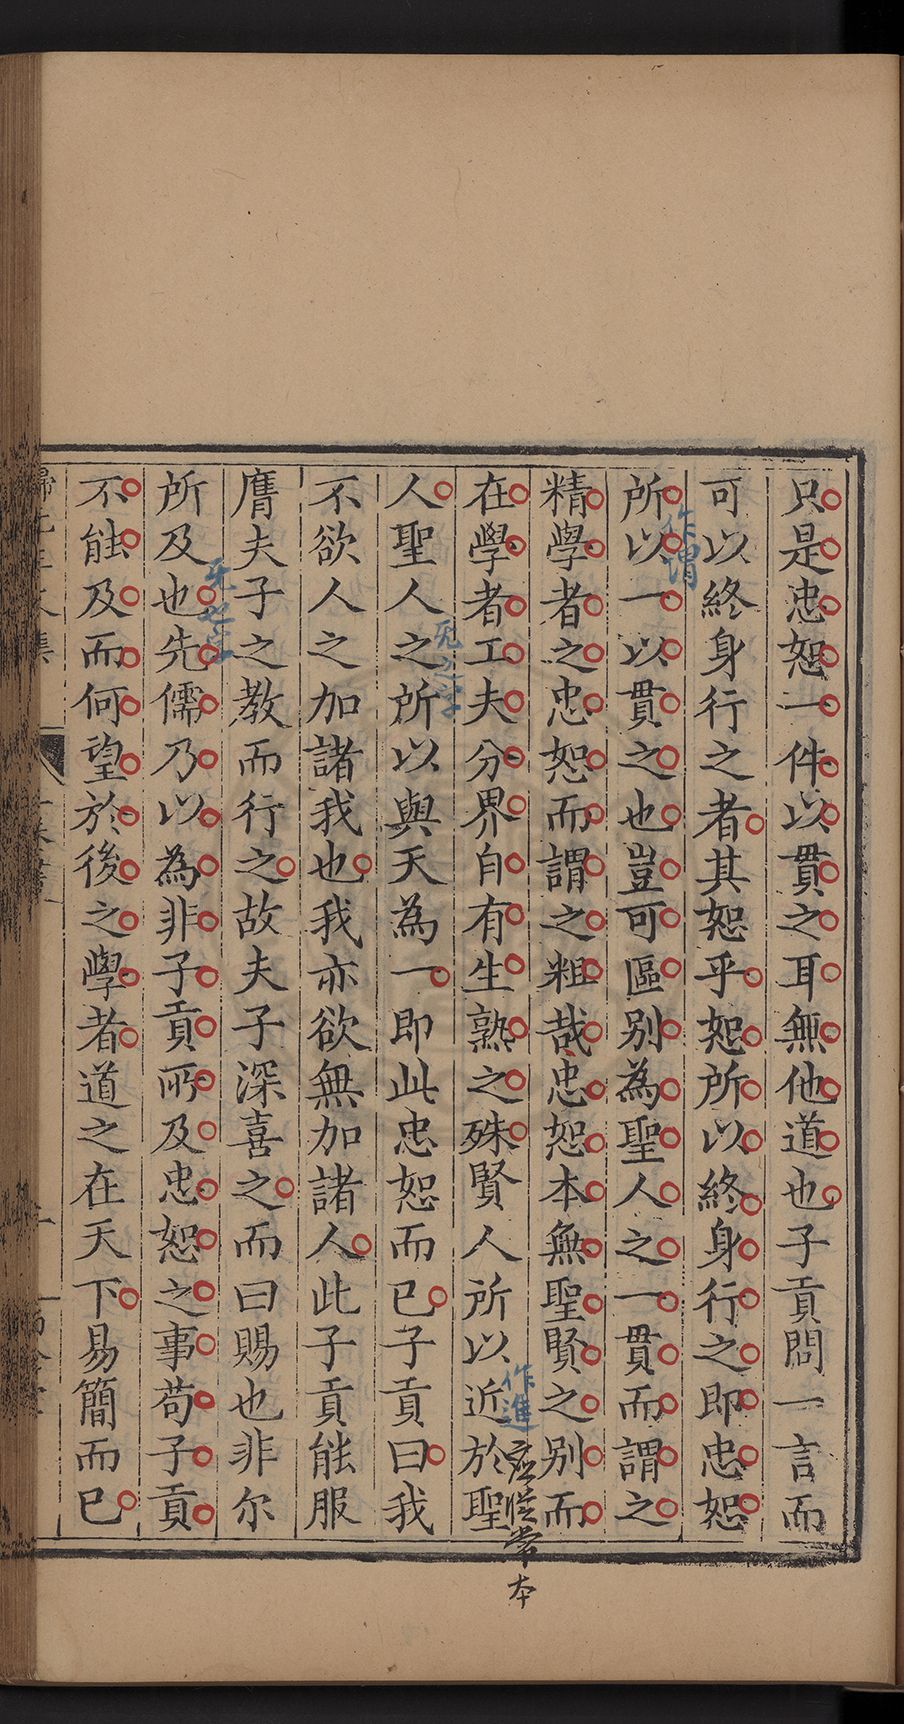 只是忠恕一件以貫之耳無他道也子貢問一言而
可以終身行之者其恕乎恕所以終身行之即忠恕
所以一以貫之也豈可區別為聖人之一貫而謂之
作謂
精學者之忠恕而謂之粗哉忠恕本無聖賢之別而
在學者工夫分界自有生熟之殊賢人所以近於聖
作進
應從常本
人聖人之所以與天為一即此忠恕而已子貢曰我
无之字
不欲人之加諸我也我亦欲無加諸人此子貢能服
膺夫子之教而行之故夫子深喜之而曰賜也非尔
所及也先儒乃以為非子貢所及忠恕之事苟子貢
不能及而何望於後之學者道之在天下易簡而已